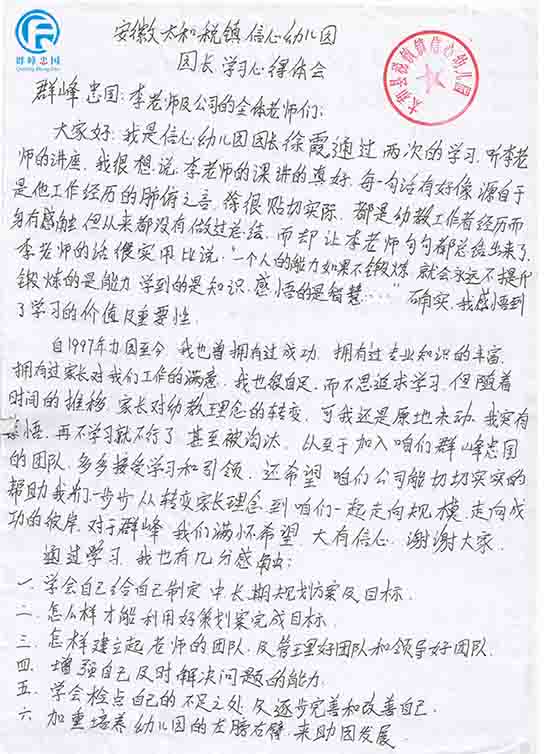 群峰忠国
安徽太和税镇信心幼儿园
园长学习心得体会
太和县税镇镇信心幼儿园
群峰忠国:李老师及公司的全体老师们:
大家好:我是信心幼儿园园长徐霞通过两次的学习,听李老
师的讲座,我很想说,李老师的课讲的真好,每一句话有好像源自于
是他工作经历的肺俯之言,徐很贴切实际,都是幼教工作者经历而
身有感触,但从来都没有做过总结,而却让李老师句句都总结出来了,
李老师的话很实用比说:"一个人的能力如果不锻炼,就会永远不提升
锻炼的是能力 学到的是知识,感悟的是智慧……"确实,我感悟到
了学习的价值及重要性.
自1997年办园至今,我也曾拥有过成功,拥有过专业知识的丰富,
拥有过家长对我们工作的满意,我也很自足,而不思追求学习,但随着
时间的推移,家长对幼教理念的转变,可我还是原地未动,我突有
感悟,再不学习就不行了,甚至被淘汰,从至于加入咱们群峰忠国
的团队,多多接受学习和引领,还希望咱们公司能切切实实的
帮助我们一步步从转变家长理念到咱们一起走向规模,走向成
功的彼岸,对于群峰,我们满怀希望,大有信心,谢谢大家.
通过学习,我也有几分感触:
一.学会自己给自己制定中长期规划方案及目标.
二.怎么样才能利用好策划案完成目标.
三.怎样建立起老师的团队,及管理好团队和领导好团队.
四.增强自己及时解决问题的能力.
五.学会检点自己的不足之处,及逐步完善和改善自己.
六.加重培养幼儿园的左膀右臂,来助园发展.